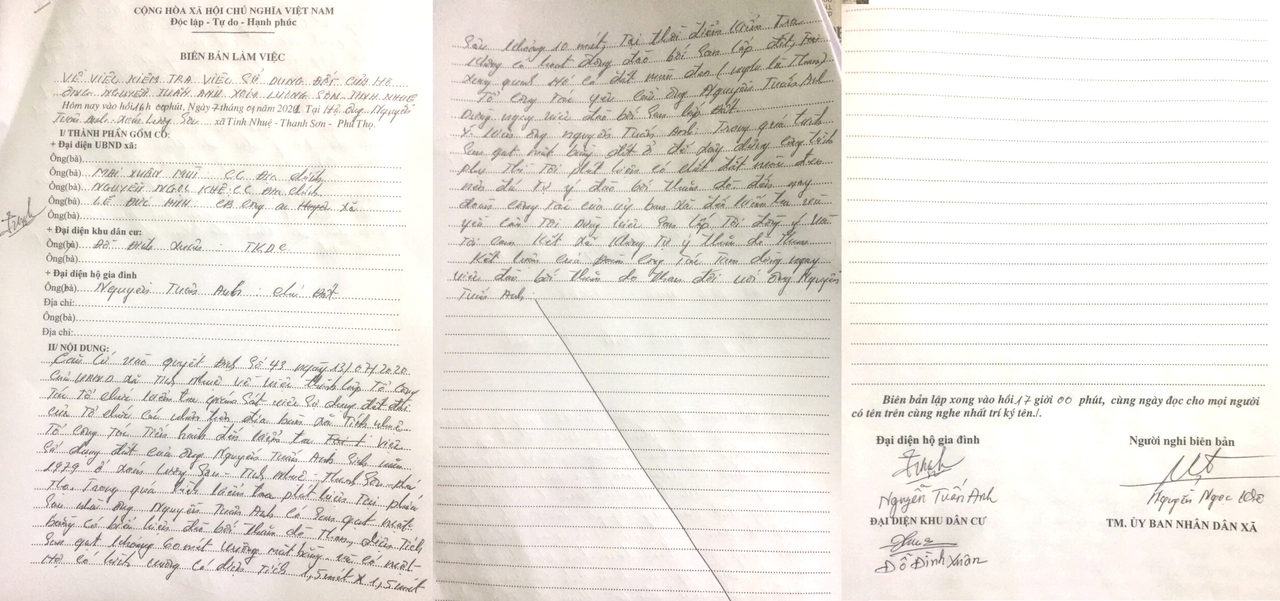 CỘNG HÒA XÃ HỘI CHỦ NGHĨA VIỆT NAM
Độc lập - Tự do - Hạnh phúc
BIÊN BẢN LÀM VIỆC
VỀ VIỆC KIỂM TRA VIỆC SỬ DỤNG ĐẤT CỦA HỘ
ÔNG NGUYỄN TUẤN ANH XÓM LƯƠNG SƠN TINH NHUỆ
Hôm nay vào hồi 16h 00 phút, Ngày 7 tháng 01 năm 2021 Tại Hộ ông Nguyễn
Tuấn Anh - Xóm Lương Sơn xã Tinh Nhuệ - Thanh Sơn - Phú Thọ.
I/ THÀNH PHẦN GỒM CÓ:
+ Đại diện UBND xã:
Ông(bà)
Ông(bà) MAI XUÂN CC Địa chính
Ông(bà) NGUYỄN NGỌC KHÊ CC Địa chính
Ông(bà) LÊ ĐỨC CB Công an xã
Ông(bà)
+ Đại diện khu dân cư:
Ông(bà) Đỗ Đình Xuân : TKDC
Ông(bà)
+ Đại diện hộ gia đình
Ông(bà) Nguyễn Tuấn Anh : Chủ
Địa chỉ:
Ông(bà)
Địa chỉ:
II/ NỘI DUNG:
Căn cứ vào quyết định số 43 ngày 13/07/2020
của UBND xã Tinh Nhuệ về việc thành lập Tổ công
tác tổ chức kiểm tra giám sát việc sử dụng đất đai
của tổ chức cá nhân trên địa bàn xã Tinh Nhuệ
Tổ công tác tiến hành đến kiểm tra việc
sử dụng đất của ông Nguyễn Tuấn Anh sinh năm
1979 ở xóm Lương Sơn - Tinh Nhuệ - Thanh Sơn - Phú
Thọ. Trong quá trình kiểm tra phát hiện tại phía
sau nhà ông Nguyễn Tuấn Anh có san gạt mặt
bằng có biểu hiện đào bới thăm dò than, diện tích
san gạt khoảng 60 mét vuông mặt bằng và có một
Hố có kích vuông có diện tích 1,5 mét x 1,5 mét
sâu khoảng 10 mét, tại thời điểm kiểm tra
không có hoạt động đào bới san lấp đất,
xung quanh Hố có đất màu đen
Tổ công tác yêu cầu ông Nguyễn Tuấn Anh
Dừng ngay việc đào bới san lấp đất
Ý kiến ông Nguyễn Tuấn Anh: Trong quá trình
san gạt mặt bằng đất ở để xây dựng công trình
phụ thì Tôi phát hiện có chất đất màu đen
nên đã tự ý đào bới thăm dò đến nay
đoàn công tác của uỷ ban xã đến kiểm tra và
yêu cầu Tôi dừng việc san lấp Tôi đồng ý và
Tôi cam kết sẽ không tự ý thăm dò than
Kết luận của Đoàn công tác tạm dừng ngay
việc đào bới thăm dò than đối với ông Nguyễn
Tuấn Anh
Biên bản lập xong vào hồi 17 giờ 00 phút, cùng ngày đọc cho mọi người
có tên trên cùng nghe nhất trí ký tên./.
Đại diện hộ gia đình
Người nghi biên bản
Nguyễn Tuấn Anh
Nguyễn Ngọc Khê
ĐẠI DIỆN KHU DÂN CƯ
TM. ỦY BAN NHÂN DÂN XÃ
Đỗ Đình Xuân